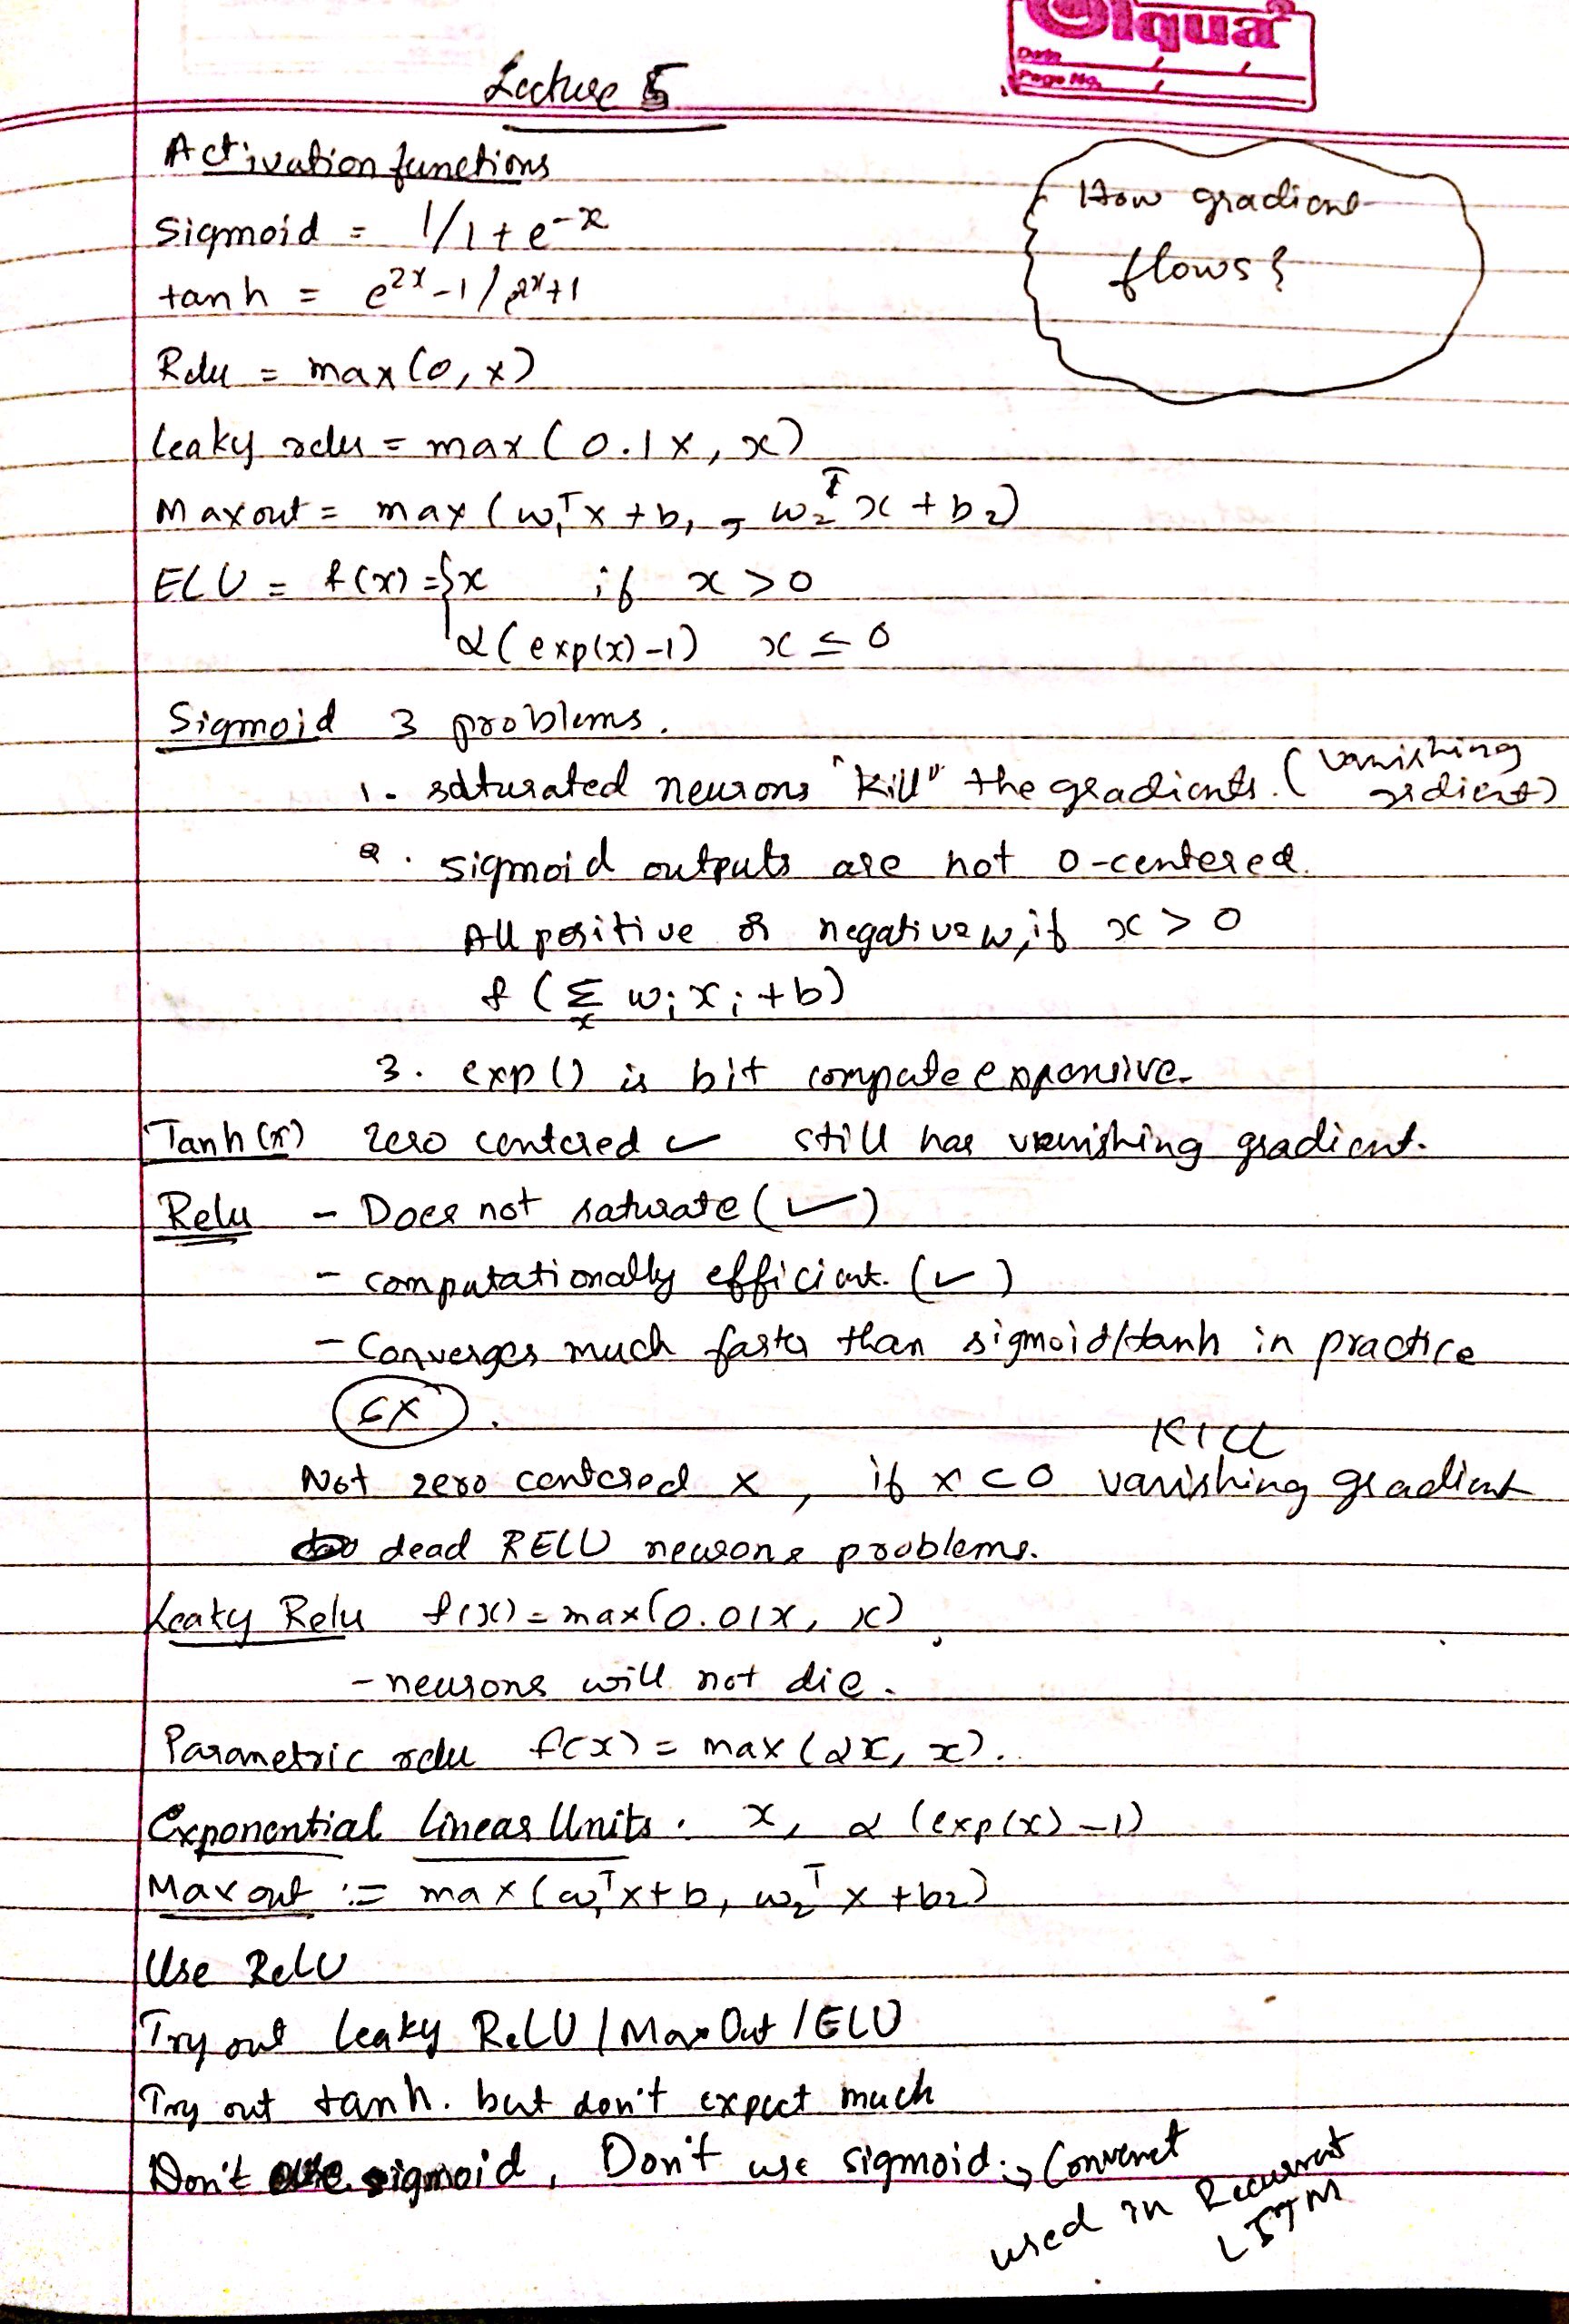 Olqua
Date / /
Page No. /
Lecture 5
Activation functions
How gradient
flows ?
Sigmoid = 1/1+e^-x
tanh = e^2x-1/e^2x+1
Relu = max(0, x)
leaky relu = max(0.1x, x)
Maxout = max(w₁ᵀx+b₁, w₂ᵀx+b₂)
ELU = f(x) = { x if x > 0
α(exp(x)-1) x ≤ 0
Sigmoid 3 problems.
1. saturated neurons "kill" the gradients. (vanishing
grdient)
2. sigmoid outputs are not 0-centered.
All positive or negative w, if x > 0
f(Σ wᵢxᵢ+b)
3. exp() is bit compute expensive.
Tanh(x) zero centered ✓ still has vanishing gradient.
Relu - Does not saturate (✓)
- computationally efficient. (✓)
- Converges much faster than sigmoid/tanh in practice
6X.
Kill
Not zero centered x, if x<0 vanishing gradient
dead RELU neurons problems.
Leaky Relu f(x) = max(0.01x, x),
- neurons will not die.
Parametric relu f(x) = max(αx, x)..
Exponential Linear Units. x, α(exp(x)-1)
Maxout := max(w₁ᵀx+b₁, w₂ᵀx+b₂)
Use RelU
Try out leaky ReLU / MaxOut / ELU
Try out tanh. but don't expect much
Don't use sigmoid, Don't use sigmoid. → Convenet
used in Recurrent
LSTM